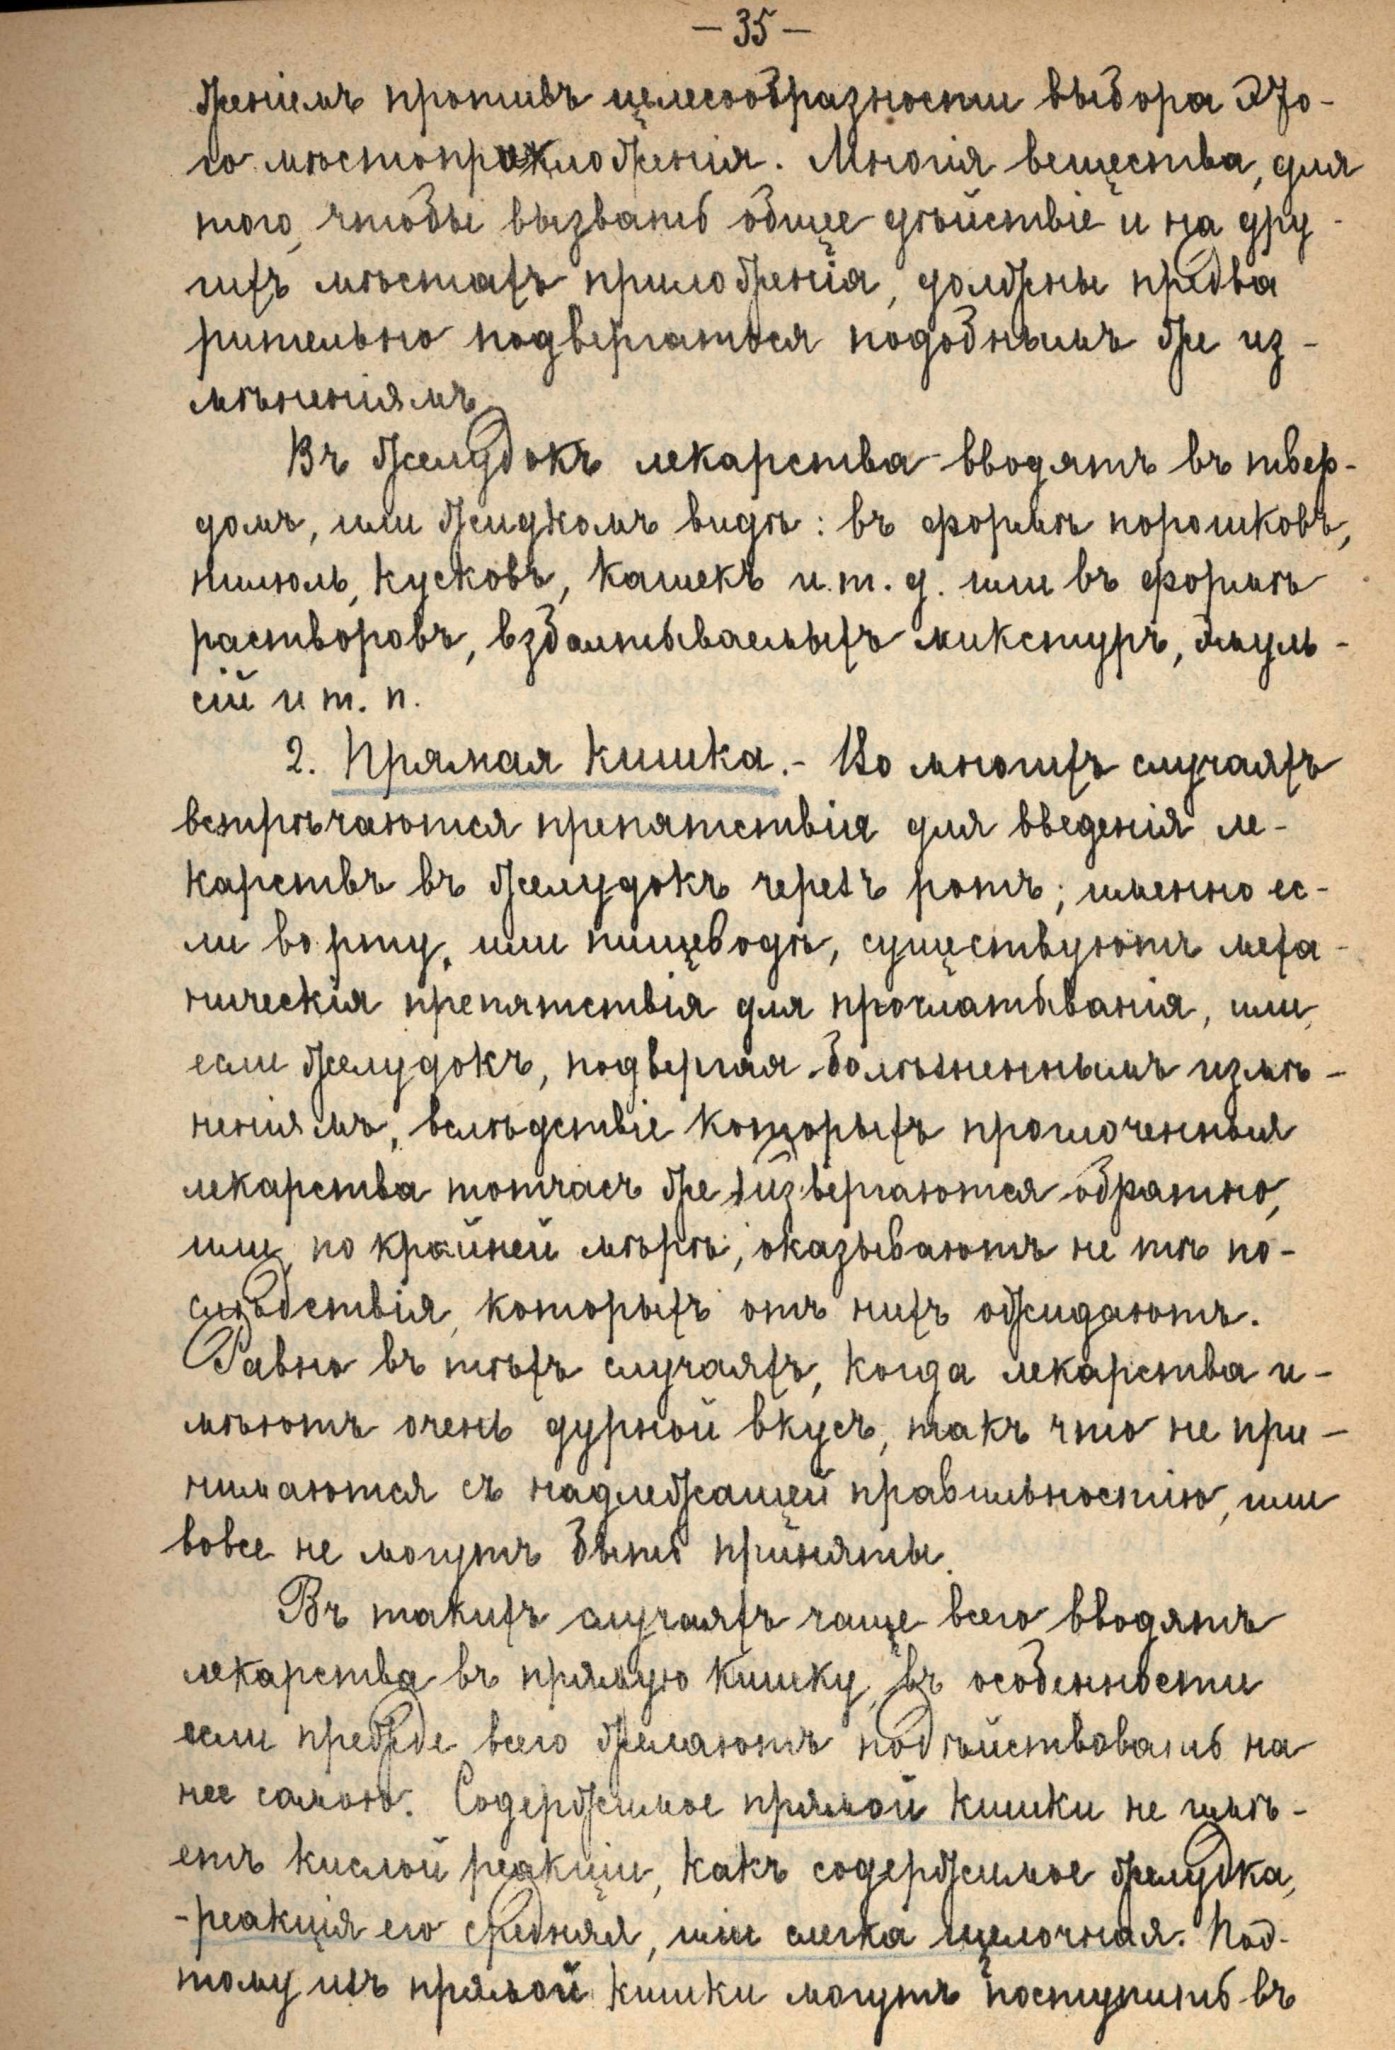 — 35 —
женіемъ противъ целесообразности выбора это-
го мѣстоприложенія. Многія вещества, для
того, чтобы вызвать общее дѣйствіе и на дру-
гихъ мѣстахъ приложенія, должны предва
рительно подвергаться подобнымъ же из-
мѣненіямъ.
Въ желудокъ лекарства вводятъ въ твер-
домъ, или жидкомъ видѣ: въ формѣ порошковъ,
пилюль, кусковъ, кашекъ и.т.д. или въ формѣ
растворовъ, взбалтываемыхъ микстуръ, эмуль-
сій и т. п.
2. Прямая кишка. - Во многихъ случаяхъ
встрѣчаются препятствія для введенія ле-
карствъ въ желудокъ черезъ ротъ; именно ес-
ли во рту, или пищеводѣ, существуютъ меха-
ническія препятствія для проглатыванія, или,
если желудокъ, подвергая болѣзненнымъ измѣ-
неніямъ, вслѣдствіе которыхъ проглоченныя
лекарства тотчасъ же извергаются обратно,
или, по крайней мѣрѣ, оказываютъ не тѣ по-
слѣдствія, которыхъ отъ нихъ ожидаютъ.
Равно въ тѣхъ случаяхъ, когда лекарства и-
мѣютъ очень дурной вкусъ, такъ что не при-
нимаются съ надлежащей правильностію, или
вовсе не могутъ быть приняты.
Въ такихъ случаяхъ чаще всего вводятъ
лекарства въ прямую кишку, въ особенности
если прежде всего желаютъ подѣйствовать на
нее самою. Содержимое прямой кишки не имѣ-
етъ кислой реакціи, какъ содержимое желудка,
-реакція его средняя, или слегка щелочная. Поэ-
тому изъ прямой кишки могутъ поступить въ